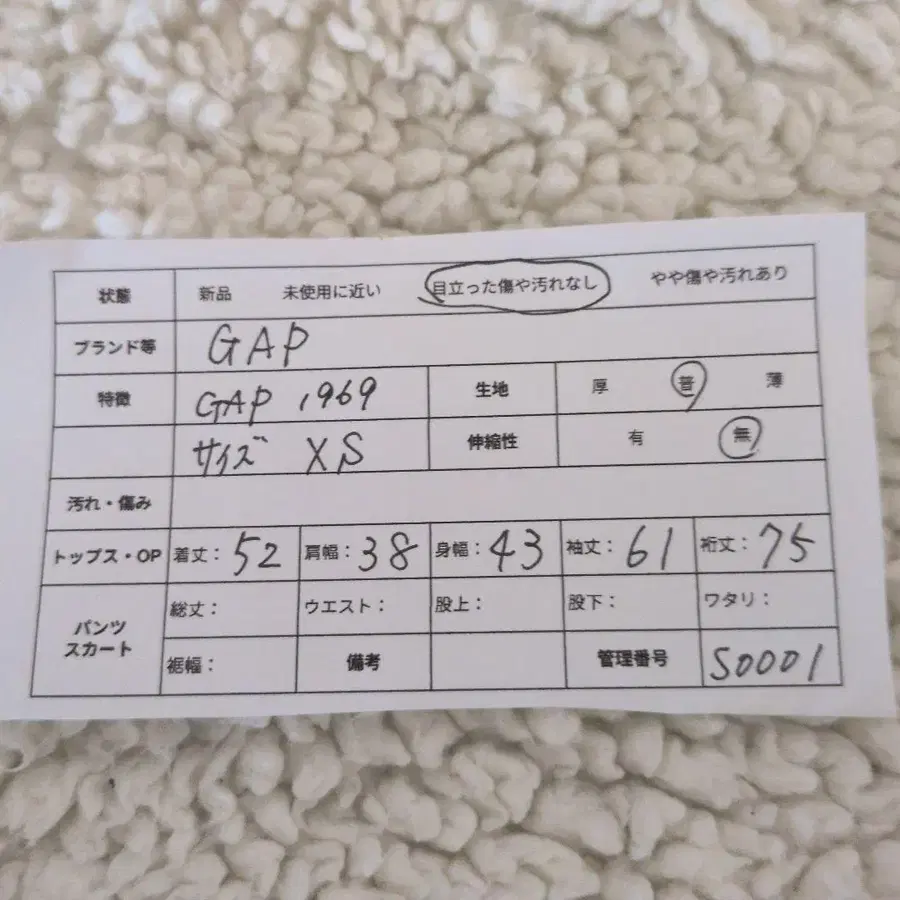 状態 新品 未使用に近い 目立った傷や汚れなし やや傷や汚れあり
ブランド等 GAP
特徴 GAP 1969 生地 厚 普 薄
サイズ XS 伸縮性 有 無
汚れ・傷み
トップス・OP 着丈：52 肩幅：38 身幅：43 袖丈：61 裄丈：75
パンツ スカート 総丈： ウエスト： 股上： 股下： ワタリ：
裾幅： 備考 管理番号 S0001